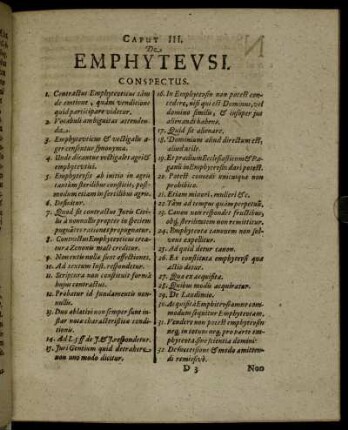 CAPUT III.
De
EMPHYTEVSI.
CONSPECTUS.
1. Contractus Emphyteoticus tàm
de continet, quàm venditione
quid participare videtur.
2. Vocabuli ambiguitas attenden-
da.
3. Emphyteoticus & vectigalis a-
ger censentur synonyma.
4. Unde dicantur vectigales agri &
emphyteotici.
5. Emphyteusis ab initio in agris
tantùm sterilibus constitit, post-
modum etiam in fertilibus agris.
6. Definitur.
7. Quod sit contractus Juris Civi-
lis à nonnullis propter in speciem
pugnantes rationes propugnatur.
8. Contractus Emphyteoticus crea-
tura Zenonis malè creditur.
9. Nomenti nulla sunt affectiones.
10. Ad textum Inst. respondetur.
11. Scriptura non constituit formā
hujus contractus.
12. Probatur id fundamentis non-
nullis.
13. Duo ablativi non semper sunt in-
star nota characteristica condi-
tionis.
14. Ad l. 5 ff de J. & J. respondetur.
15. Juri Gentium quid detrahere
non uno modo dicitur.
16. In Emphyteusin non potest con-
cedere, nisi qui est Dominus, vel
domino similis, & insuper jus
alienandi habens.
17. Quid sit alienare.
18. Dominium aliud directum est,
aliud utile.
19. Et pradium Ecclesiasticum & Pa-
ganū in Emphyteusin dari potest.
20. Potest concedi unicuique non
prohibito.
21. Etiam minori, mulieri &c.
22. Tàm ad tempus quàm perpetuū.
23. Canon non respondet fructibus,
obq́, sterilitatem non remittitur.
24. Emphyteuta canonem non sol-
vens expellitur.
25. Ad quid detur canon.
26. Ex constituta emphyteusi qua
actio detur.
27. Qua ex acquisita.
28. Quibus modis acquiratur.
29. De Laudimio.
30. Acquisitā Emphyteusin omne com-
modum sequitur Emphyteotam.
31. Vendere non potest emphyteusin
neq, in totum neq, pro parte em-
phyteota sine scientia domini
32. De
D 3
Non